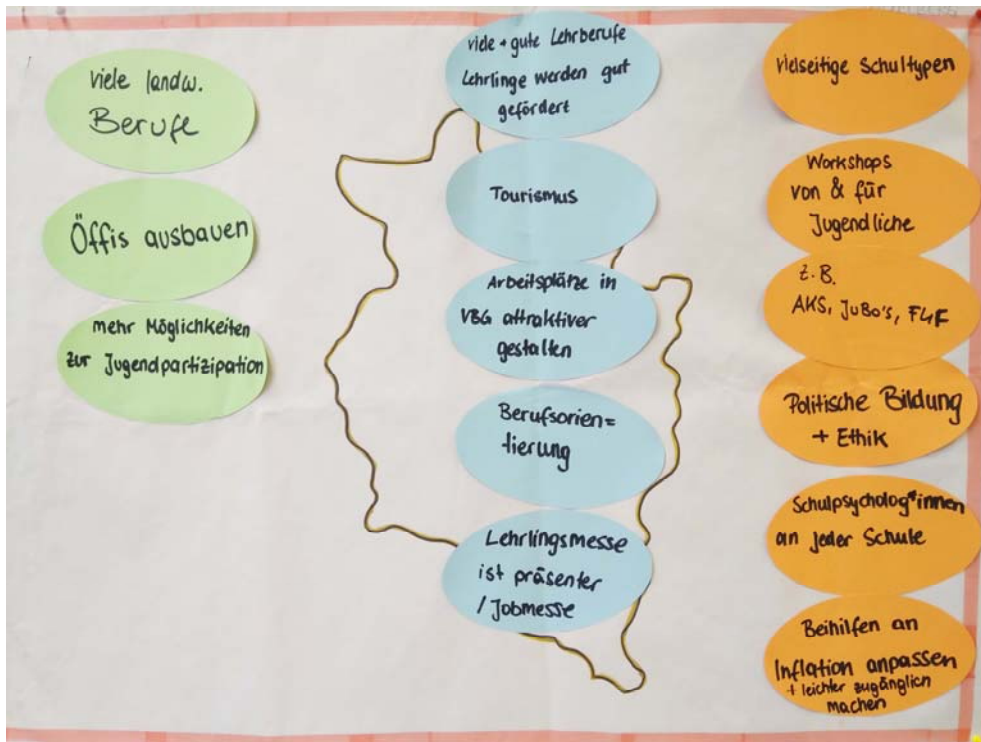 viele landw.
Berufe
Öffis ausbauen
mehr Möglichkeiten
zur Jugendpartizipation
viele + gute Lehrberufe
Lehrlinge werden gut
gefördert
Tourismus
Arbeitsplätze in
VBG attraktiver
gestalten
Berufsorien=
tierung
Lehrlingsmesse
ist präsenter
/ Jobmesse
vielseitige Schultypen
Workshops
von & für
Jugendliche
z.B.
AKS, JuBo's, F4F
Politische Bildung
+ Ethik
Schulpsycholog*innen
an jeder Schule
Beihilfen an
Inflation anpassen
+ leichter zugänglich
machen